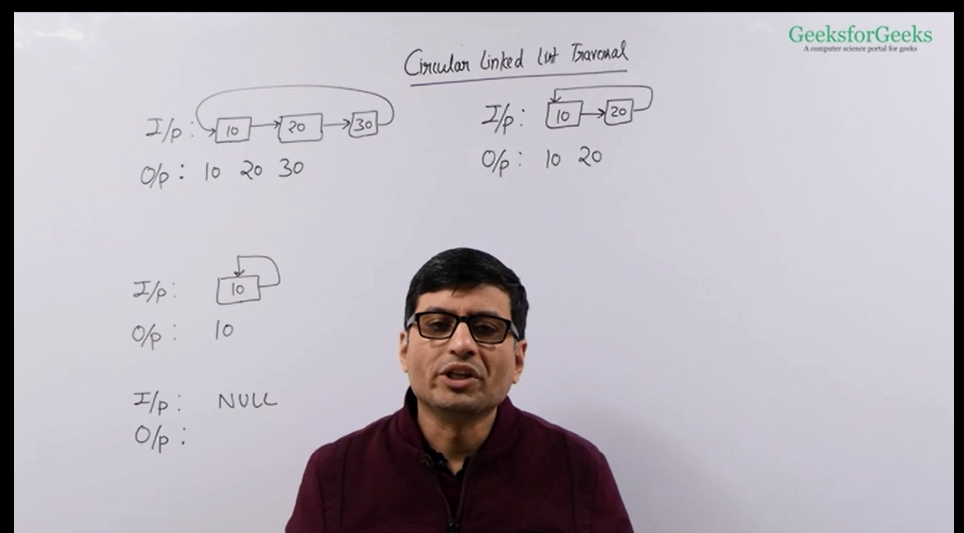 GeeksforGeeks
A computer science portal for geeks
Circular Linked List Traversal
I/p: 10 20 30
O/p: 10 20 30
I/p: 10 20
O/p: 10 20
I/p: 10
O/p: 10
I/p: NULL
O/p: